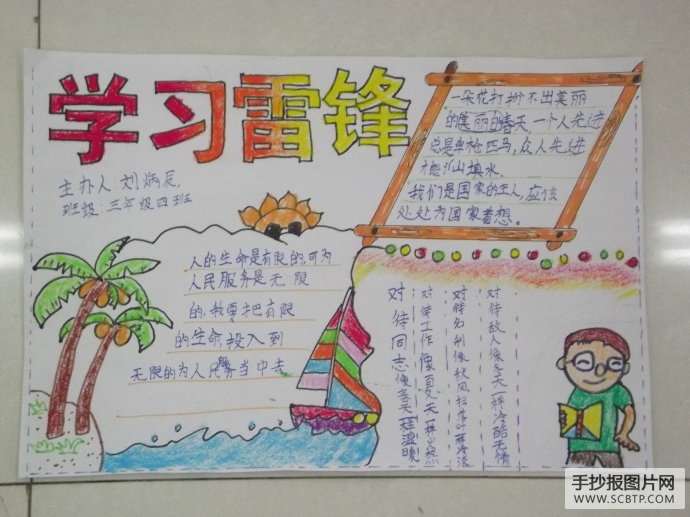 学习雷锋
主办人:刘炳辰
班级:三年级四班
一朵花打扮不出美丽
的美丽的春天一个人先进
总是单枪匹马,众人先进
才能移山填水。
我们是国家的主人,应该
处处为国家着想。
人的生命是有限的,可为
人民服务是无限
的,我要把有限
的生命,投入到
无限的为人民服务当中去
对待同志像春天一样温暖
对待工作像夏天一样火热
对待个别像秋风扫落叶
对待敌人像冬天一样冷酷无情
手抄报图片网
www.SCBTP.COM